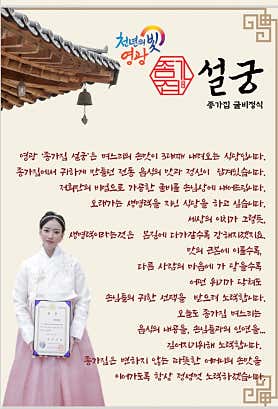 천년의 빛
영광
종가집
설궁
종가집 굴비정식
영광 '종가집 설궁'은 며느리의 손맛이 3대째 내려오는 식당입니다.
종가집에서 귀하게 만들던 전통 음식의 맛과 정신이 함께있습니다.
저희만의 비법으로 가공한 굴비를 손님상에 내어드립니다.
오래가는 생명력을 지닌 식당을 하고 싶습니다.
세상의 이치가 그렇듯,
생명력이라는것은 본질에 다가갈수록 강해지겠지요.
맛의 근본에 이를수록,
다른 사람의 마음에 가 닿을수록
어떤 위기가 닥쳐도
손님들의 귀한 선택을 받으려 노력합니다.
오늘도 종가집 며느리는
음식의 내공을, 손님들과의 인연을...
깊어지기위해 노력합니다.
종가집은 변하지 않는 따뜻한 어머니의 손맛을
이어가도록 항상 정성껏 노력하겠습니다.